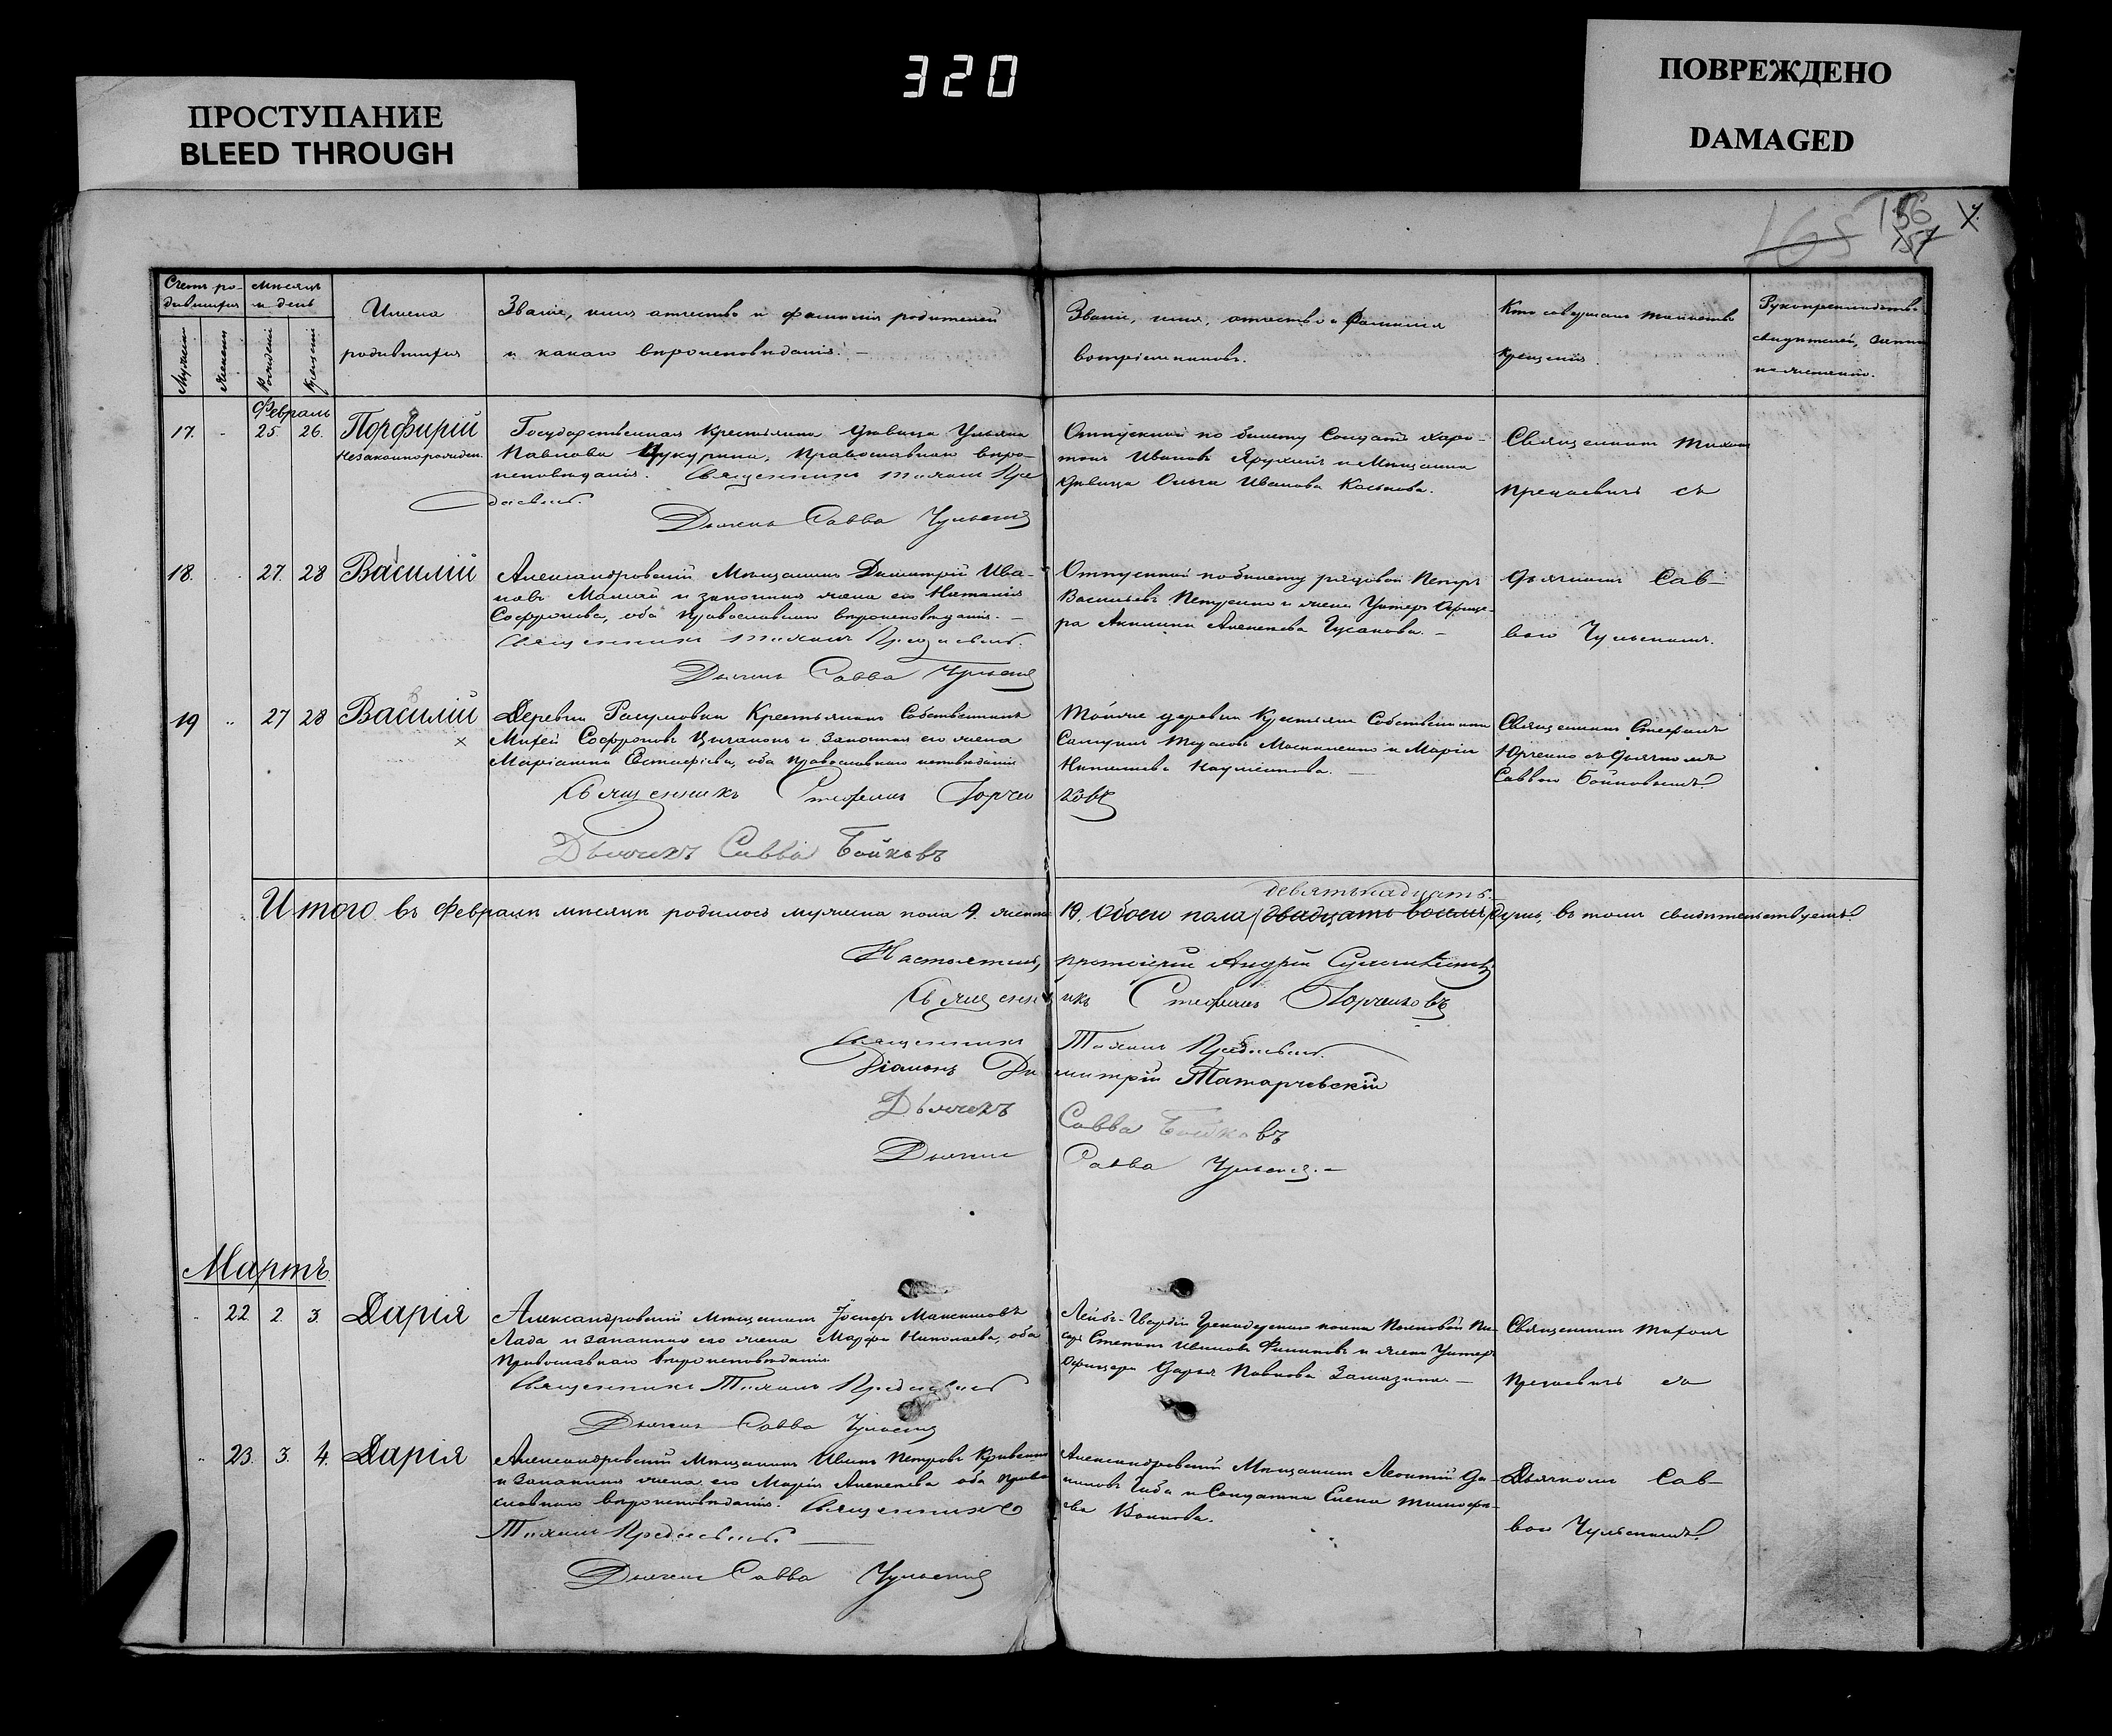 ПРОСТУПАНИЕ
BLEED THROUGH
320
ПОВРЕЖДЕНО
DAMAGED
165 156 57
Счетъ ро- дившихся
Мѣсяцъ и день
Мужеска
Женска
Рожденія
Крещенія
Имена
родившихся
Званіе, имя отчество и фамилія родителей
и какаго вѣроисповѣданія.
Званіе, имя, отчество и Фамилія
воспріемниковъ.
Кто совершалъ таинство
крещенія.
Рукоприкладство
свидѣтелей, записи
по желанію.
Февраль
17. 25. 26. Порфирій
Незаконнорожден.
Государственная крестьянка дѣвица Ульяна
Павлова Цукурина, Православнаго вѣро-
исповѣданія. Священникъ Тихонъ Пре
даевичъ.
Дьячекъ Савва Чульскій
Отпускной по билету Солдатъ Хари-
тонъ Ивановъ и Мѣщанка
дѣвица Ольга Иванова Косикова.
Священникъ Тихонъ
Предаевичъ съ
18. 27. 28 Василій
Александровскій Мѣщанинъ Димитрій Ива-
новъ Мамай и законная жена его Наталія
Софронова, оба Православнаго вѣроисповѣданія.
Священникъ Тихонъ Предаевичъ.
Дьячекъ Савва Чульскій
Отпускной по билету рядовой Петръ
Васильевъ Петренко и жена Унтеръ Офице-
ра Акилина Алексѣева Гусакова.
дьячкомъ Сав-
вою Чульскимъ.
19 27 28 Василій
Деревни Разумовки Крестьянинъ Собственникъ
Мифей Софроновъ Цыганокъ и Законная его жена
Маріанна Евстафіева, оба православнаго исповѣданія
Священникъ Стефанъ Юрченковъ
Дьячекъ Савва Бойковъ
Тойже деревни Крестьяне Собственники
Самуилъ Москаленко и Марія
Науменкова.
Священникъ Стефанъ
Юрченко съ дьячкомъ
Саввою Бойковымъ
девятьнадцать
Итого въ Февралѣ мѣсяцѣ родилось мужеска пола 9. женска 19. Обоего пола (двадцать восемь) душъ, въ томъ свидѣтельствуемъ.
Настоятель, протоіерей Андрей
Священникъ Стефанъ Юрченковъ
Священникъ Тихонъ Предаевичъ.
Діаконъ Димитрій Татарчевскій
Дьячекъ Савва Бойковъ
Дьячекъ Савва Чульскій.
Мартъ
22 2. 3. Дарія
Александровскій Мѣщанинъ Іосифъ Максимовъ
Лада и законная его жена Марфа Николаева, оба
Православнаго вѣроисповѣданія
Священникъ Тихонъ Предаевичъ
Дьячекъ Савва Чульскій
Лейбъ-Гвардіи Гренадерскаго полка Полковой Пи-
сарь Степанъ Ивановъ Филиповъ и жена Унтеръ
Офицера Дарья Павлова Замазина.
Священникъ Тихонъ
Предаевичъ съ
23. 3. 4. Дарія
Александровскій Мѣщанинъ Иванъ Петровъ Кривенко
и Законная жена его Марія Алексѣева оба право
славнаго вѣроисповѣданія. Священникъ
Тихонъ Предаевичъ.
Дьячекъ Савва Чульскій
Александровскій Мѣщанинъ Леонтій Да-
ниловъ и Солдатка Елена Тимофе-
ева Волкова.
Дьячкомъ Сав-
вою Чульскимъ